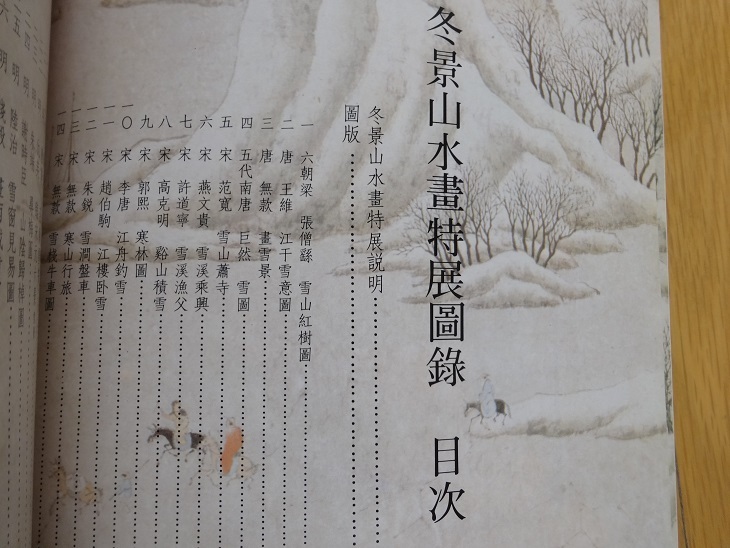 冬景山水畫特展圖錄 目次
冬景山水畫特展説明
圖版
一 六朝梁 張僧繇 雪山紅樹圖
二 唐 王維 江干雪意圖
三 唐 無款 畫雪景
四 五代南唐 巨然 雪圖
五 宋 范寬 雪山蕭寺
六 宋 燕文貴 雪溪乘興
七 宋 許道寧 雪溪漁父
八 宋 高克明 谿山積雪
九 宋 郭熙 寒林圖
一〇 宋 李唐 江舟釣雪
一一 宋 趙伯駒 江樓卧雪
一二 宋 朱銳 雪澗盤車
一三 宋 無款 寒山行旅
一四 宋 無款 雪棧牛車圖